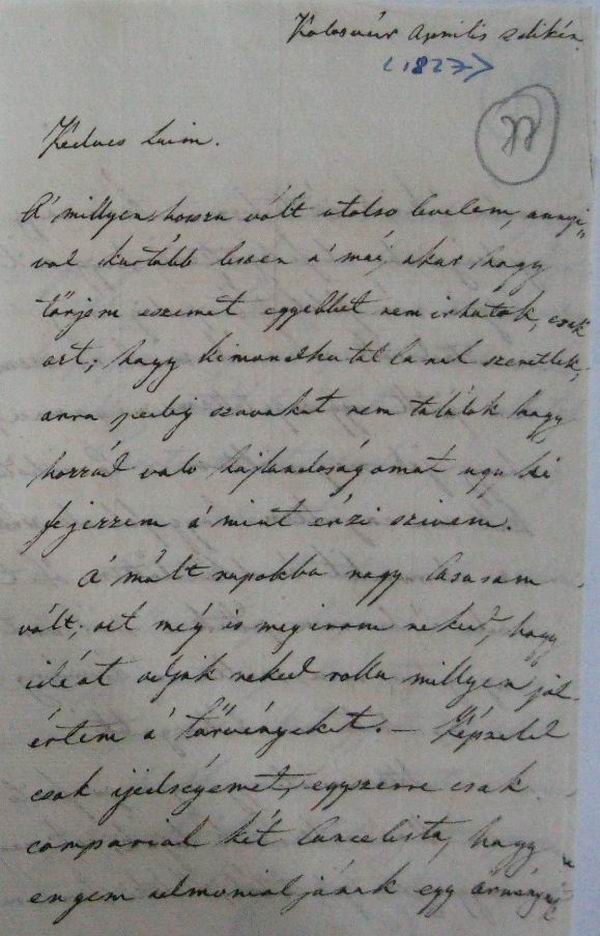 Kolosvár Április 2dikán
<1827>
77
Kedves Luim.
A' millyen hossu vólt utolso levelem, annyi
val kurtább leszen a' mái, akár hogy
törjem eszemet egyebbet nem irhatok, csak
azt; hogy kimondhatatlanul szeretlek,
arra pedig szavakat nem találok hogy
hozzád való hajlandoságomat ugy ki
fejezzem a' mint érzi szivem.
A' múlt napokba nagy
vólt; azt még is megirom neked, hogy
ideát adjak neked rolla millyen jól
értem a' törvényeket. — Képzeld
csak ijedségemet, egyszerre csak
comparial két Cancelista, hogy
engem admonialjának egy